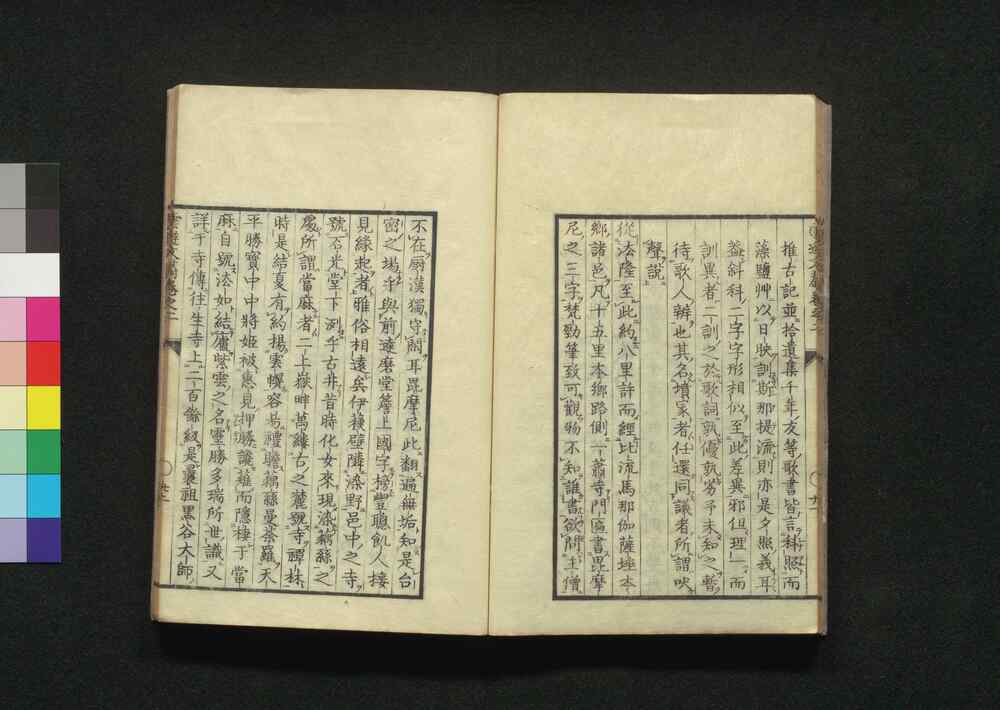 推古記並拾遺集千年友等歌書皆言科照而
藻鹽艸以日映訓斯那提流則亦是夕照義耳
益斜科二字字形相似至此差異邪但理一而
訓異者二訓之於歌詞孰優孰劣予未知之暫
待歌人辨也其名墳家者任還同議者所謂吠
聲説
從法隆至此約八里許而經比流馬那伽薩埵本
鄉諸邑凡十五里本鄉路側一蕭寺門匾書毘摩
尼之三字梵勁筆致可觀物不知誰書欲問主僧
不在厨漢獨守閣耳毘摩尼此翻遍無垢知是台
密之場守與前達磨堂簷上國字榜豐聰飢人接
見緣起者雅俗相遠矣伊護壁隣染野邑中之寺
號石光堂下洌乎古井昔時化女來現滌藕絲之
處所謂當麻者二上嶽畔萬縷古之麓號寺禪林
時是結夏有約揚雲幌容易禮瞻藕絲曼荼羅天
平勝寶中中將姬被惠見押勝讒薙而隱棲于當
麻自號法如結廬紫雲之名靈勝多瑞所世識又
詳于寺傳往生寺上二百餘級是曩祖黑谷大師